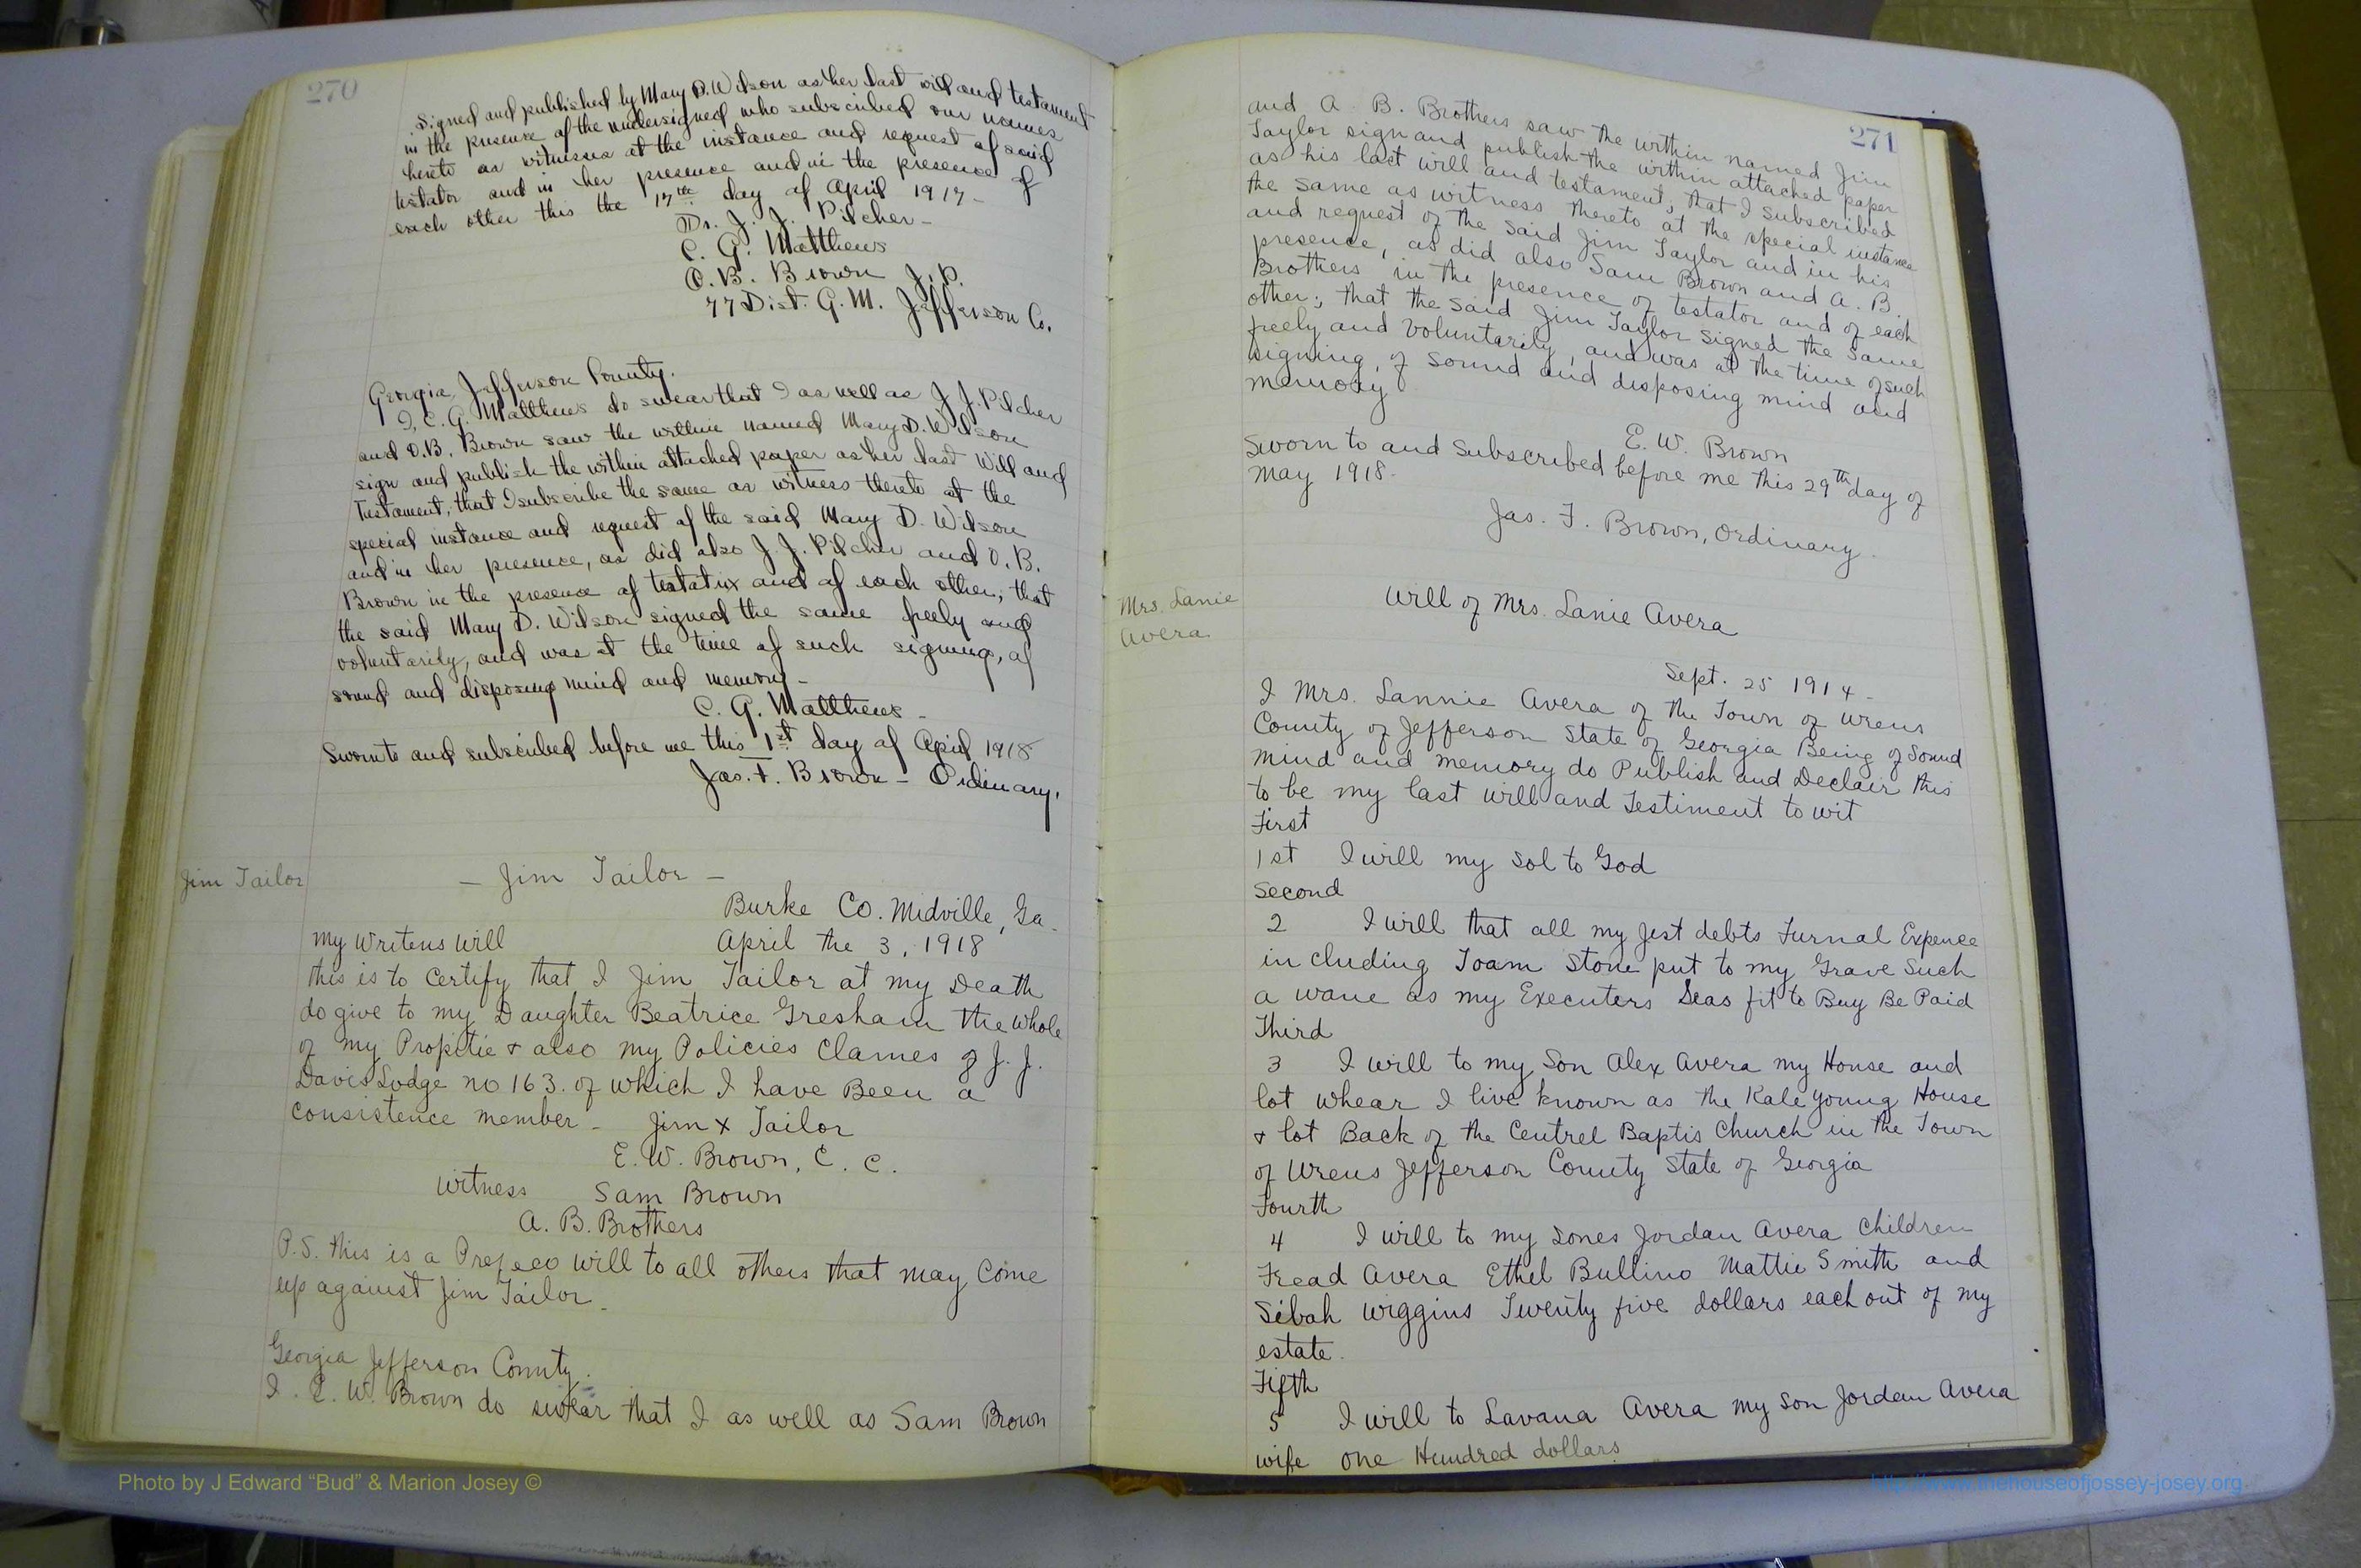 270
Signed and published by Mary D. Wilson as her last will and testament
in the presence of the undersigned who subscribed our names
hereto as witnesses at the instance and request of said
testator and in her presence and in the presence of
each other this the 17th day of April 1917-
Dr. J. J. Pilcher-
C. G. Matthews
O. B. Brown J.P.
77 Dist. G. M. Jefferson Co.
Georgia, Jefferson County.
I, C. G. Matthews do swear that I as well as J J. Pilcher
and O.B. Brown saw the within named Mary D. Wilson
sign and publish the within attached paper as her last Will and
Testament, that I subscribe the same as witness thereto at the
special instance and request of the said Mary D. Wilson
and in her presence, as did also J. J. Pilcher and O. B.
Brown in the presence of testatrix and of each other; that
the said Mary D. Wilson signed the same freely and
voluntarily, and was at the time of such signing, of
sound and disposing mind and memory-
C. G. Matthews-
Sworn to and subscribed before me this 1st day of April 1918
Jas. F. Brown - Ordinary.
Jim Tailor
- Jim Tailor -
Burke Co. Midville, Ga-
my writens will April the 3, 1918
this is to certify that I Jim Tailor at my Death
do give to my Daughter Beatrice Gresham the whole
of my Propitie & also my Policies Clames of J. J.
Davis Lodge no 163. of which I have Been a
consistence member - Jim x Tailor
E. W. Brown, C. C.
witness Sam Brown
A. B. Brothers
P.S. this is a will to all others that may come
up against Jim Tailor-
Georgia Jefferson County.
I. E. W. Brown do swear that I as well as Sam Brown
271
and A. B. Brothers saw the within named Jim
Taylor sign and publish the within attached paper
as his last will and testament; that I subscribed
the same as witness thereto at the special instance
and request of the said Jim Taylor and in his
presence, as did also Sam Brown and A. B.
Brothers in the presence of testator and of each
other; that the said Jim Taylor signed the same
freely and voluntarily, and was at the time of such
signing, of sound and disposing mind and
memory
E. W. Brown
Sworn to and subscribed before me this 29th day of
May 1918.
Jas. F. Brown, Ordinary.
Mrs. Lanie
Avera
Will of Mrs. Lanie Avera
Sept. 25 1914-
I Mrs. Lannie Avera of the Town of Wrens
County of Jefferson State of Georgia Being of Sound
mind and memory do Publish and Declair this
to be my last will and Testiment to wit
First
1st I will my Sol to God
Second
2 I will that all my jest debts Furnal Expence
in cluding Toam Stone put to my Grave Such
a wane as my Executers Seas fit to Buy Be Paid
Third
3 I will to my Son Alex Avera my House and
lot whear I live known as the Kale Young House
& lot Back of the Centrel Baptis Church in the Town
of Wrens Jefferson County State of Georgia
Fourth
4 I will to my Sones Jordan Avera Children
Fread Avera Ethel Bullino Mattie Smith and
Sibah Wiggins Twenty five dollars each out of my
estate.
Fifth
5 I will to Lavana Avera my son Jordan Avera
wife one Hundred dollars
Photo by J Edward “Bud” & Marion Josey ©
http://www.thehouseofjossey-josey.org